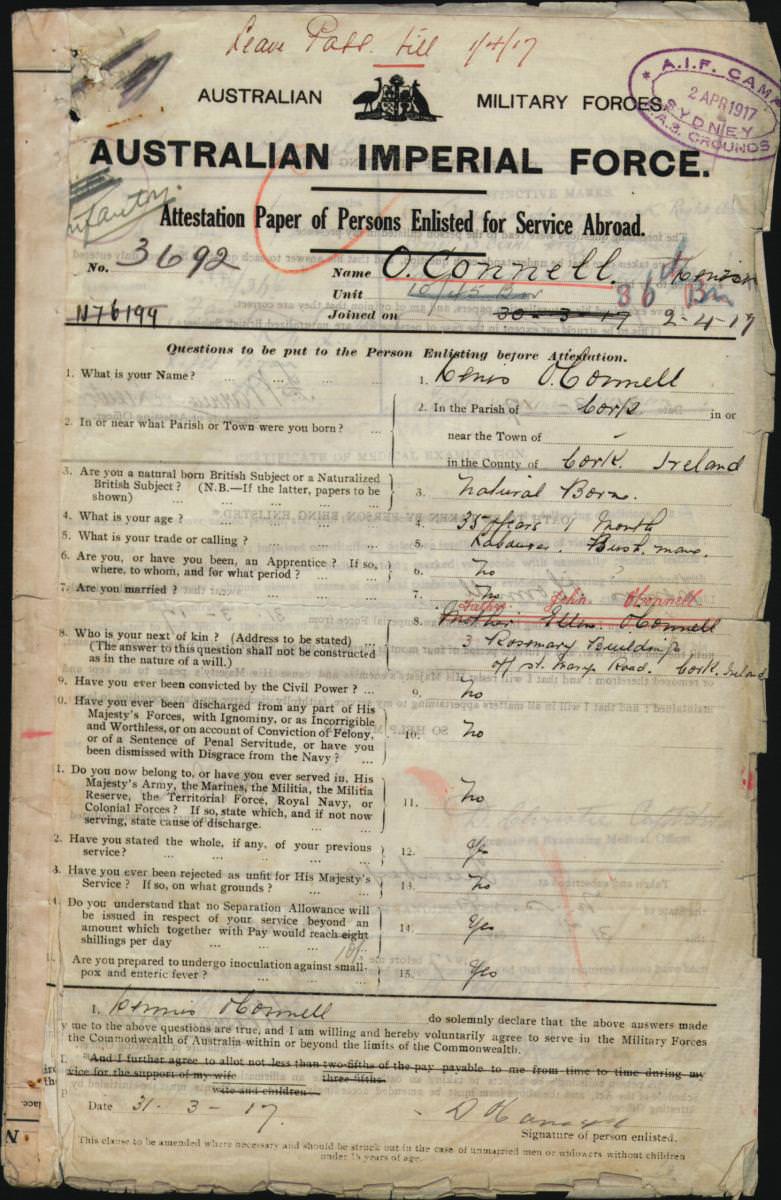 Leave Pass. till 1/4/17
AUSTRALIAN MILITARY FORCES.
A.I.F. CAMP
2 APR 1917
SYDNEY
R.A.S. GROUNDS
AUSTRALIAN IMPERIAL FORCE.
Infantry.
Attestation Paper of Persons Enlisted for Service Abroad.
No. 3692 Name O'Connell. Denis
Unit 10/45 Bn 36 Bn
N76199 Joined on 30-3-17 2-4-17
Questions to be put to the Person Enlisting before Attestation.
1. What is your Name? ... ... ... 1. Denis O'Connell
2. In or near what Parish or Town were you born? ... 2. In the Parish of Cork in or
near the Town of -
in the County of Cork. Ireland
3. Are you a natural born British Subject or a Naturalized
British Subject? (N.B.—If the latter, papers to be
shown) ... ... ... 3. Natural Born.
4. What is your age? ... ... ... 4. 35 years 1 Month
5. What is your trade or calling? ... ... 5. Labourer. Bush man.
6. Are you, or have you been, an Apprentice? If so,
where, to whom, and for what period? ... ... 6. No
7. Are you married? ... ... ... 7. No
Father John O'Connell
8. Mother Ellen O'Connell
8. Who is your next of kin? (Address to be stated)
(The answer to this question shall not be constructed
as in the nature of a will.) 3 Rosemary Buildings
off St. Marys Road. Cork. Ireland
9. Have you ever been convicted by the Civil Power? ... 9. No
0. Have you ever been discharged from any part of His
Majesty's Forces, with Ignominy, or as Incorrigible
and Worthless, or on account of Conviction of Felony,
or of a Sentence of Penal Servitude, or have you
been dismissed with Disgrace from the Navy? ... 10. No
1. Do you now belong to, or have you ever served in, His
Majesty's Army, the Marines, the Militia, the Militia
Reserve, the Territorial Force, Royal Navy, or
Colonial Forces? If so, state which, and if not now
serving, state cause of discharge. ... ... 11. No
2. Have you stated the whole, if any, of your previous
service? ... ... ... 12. Yes
3. Have you ever been rejected as unfit for His Majesty's
Service? If so, on what grounds? ... ... 13. No
4. Do you understand that no Separation Allowance will
be issued in respect of your service beyond an
amount which together with Pay would reach eight
shillings per day ... ... ... 14. Yes
10/-
Are you prepared to undergo inoculation against small-
pox and enteric fever? ... ... ... 15. Yes
I, Dennis O'Connell do solemnly declare that the above answers made
y me to the above questions are true, and I am willing and hereby voluntarily agree to serve in the Military Forces
the Commonwealth of Australia within or beyond the limits of the Commonwealth.
*And I further agree to allot not less than two-fifths of the pay payable to me from time to time during my
vice for the support of my wife three-fifths.
wife and children
Date 31-3-17. D O'Connell
Signature of person enlisted.
This clause to be amended where necessary and should be struck out in the case of unmarried men or widowers without children
under 18 years of age.